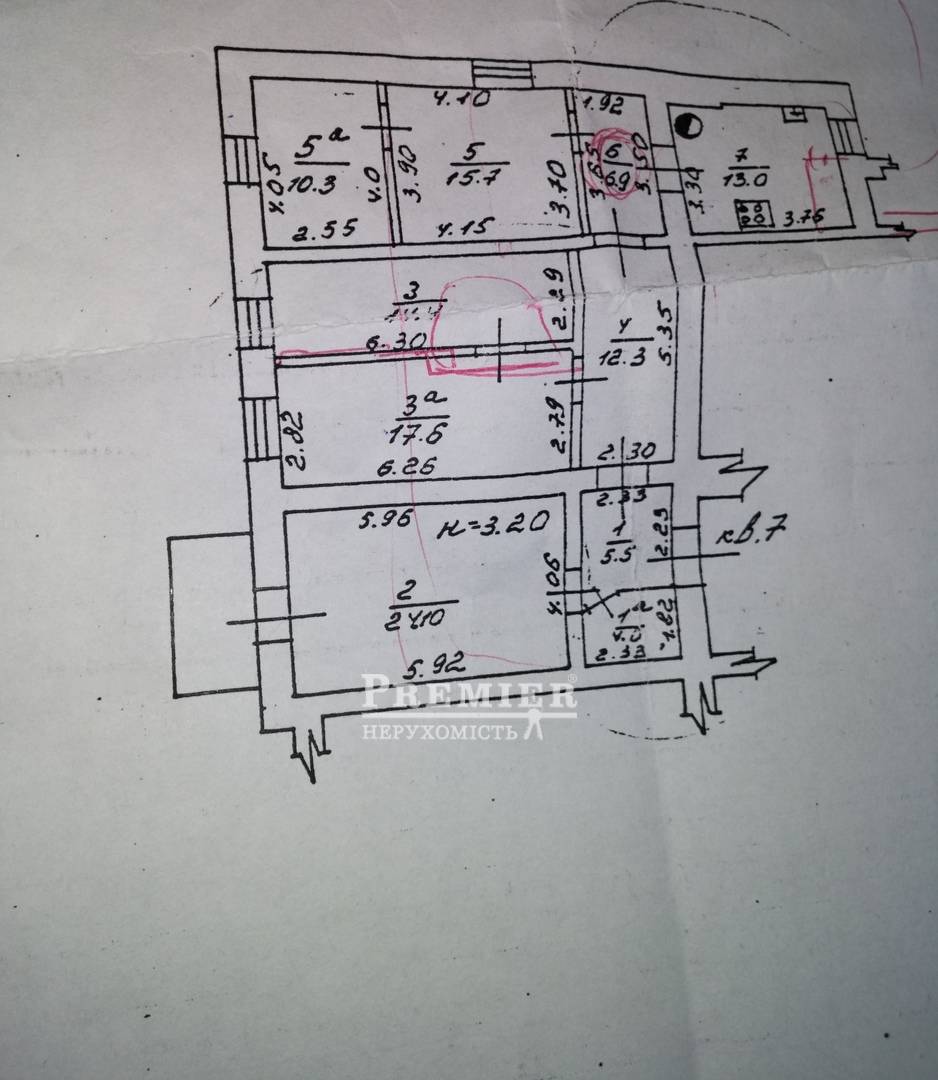 4.10
1.92
5а
10.3
4.05
4.0
2.55
3.90
5
15.7
3.70
4.15
3.65
6
6.9
3.50
3.39
7
13.0
3.76
3
2.29
6.30
4
12.3
5.35
3а
17.6
2.82
2.79
6.26
2.30
2.33
5.96
н=3.20
1
5.5
2.23
кв.7
4.06
2
24.0
1а
4.0
1.82
2.33
5.92
PREMIER®
НЕРУХОМІСТЬ